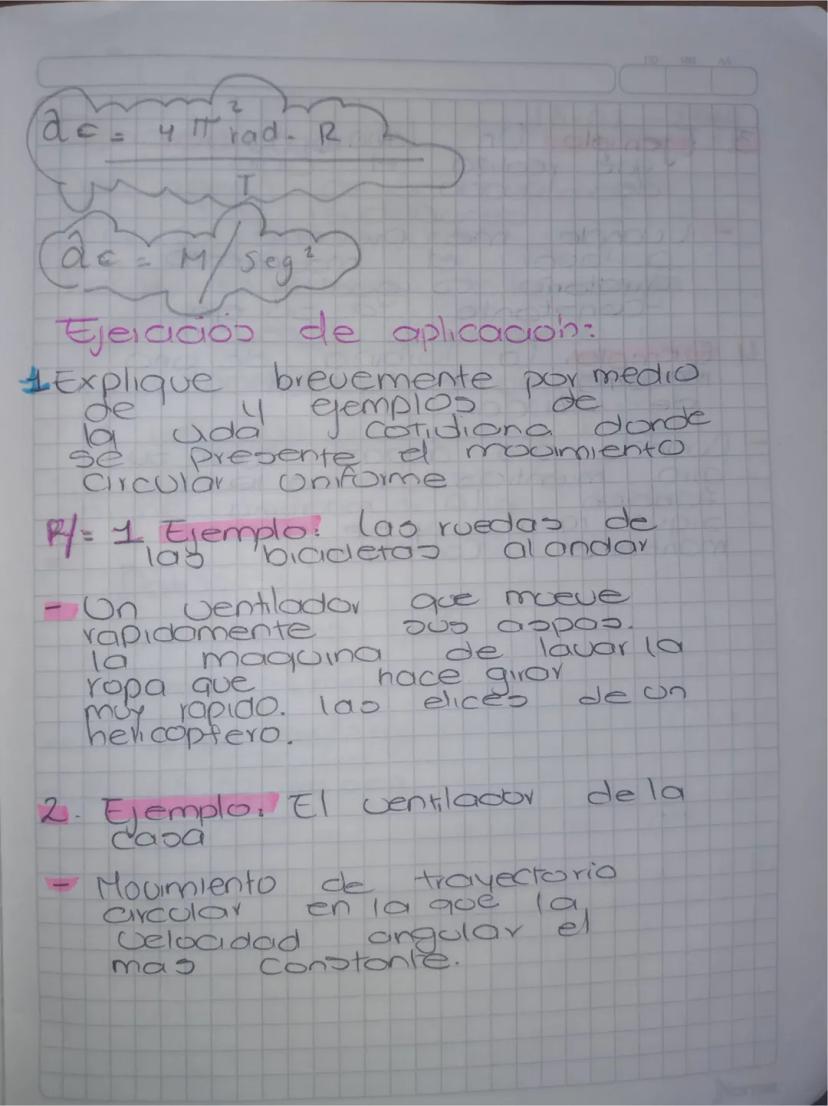 ac = 4 π² rad. R
T
ac = M/seg²
Ejercicios de aplicación:
1 Explique brevemente por medio
de 4 ejemplos de
la vida cotidiana donde
se presente el movimiento
circular uniforme
R/= 1 Ejemplo: las ruedas de
las bicicletas al andar
- Un ventilador que mueve
rapidamente sus aspas.
la maquina de lavar la
ropa que hace girar
muy rapido. las elices de un
helicoptero.
2. Ejemplo: El ventilador de la
casa
- Movimiento de trayectoria
circular en la que la
velocidad angular el
mas constante.